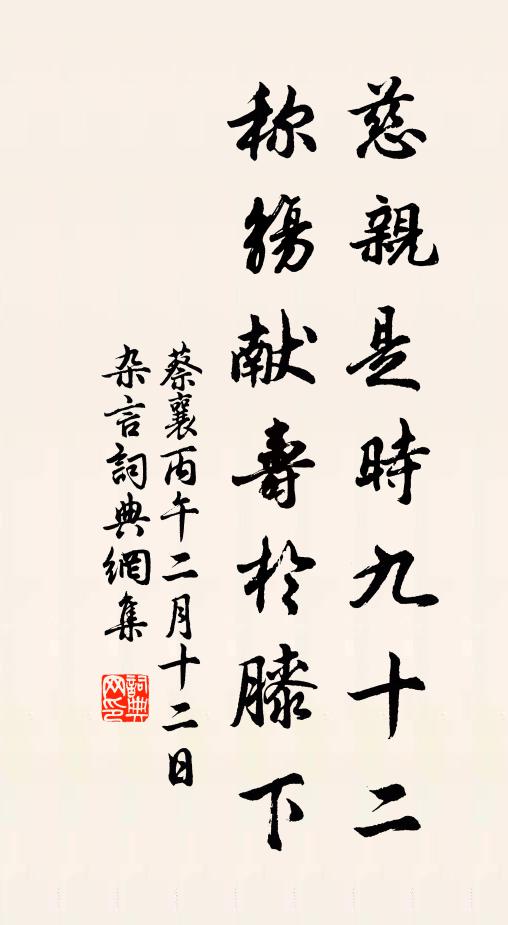 慈親是時九十二
称觴献壽於膝下
蔡襄丙午二月十二日
杂言詞典網集
詞典
网印